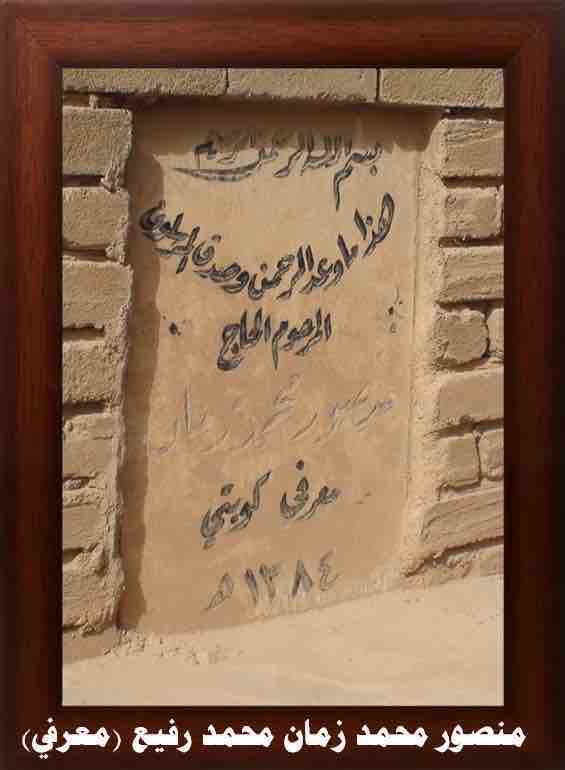 بسم الله الرحمن الرحيم
هذا ما وعد الرحمن وصدق المرسلون
المرحوم الحاج
منصور محمد زمان
معرفی کویتي
١٣٨٤ هـ
منصور محمد زمان محمد رفيع (معرفي)